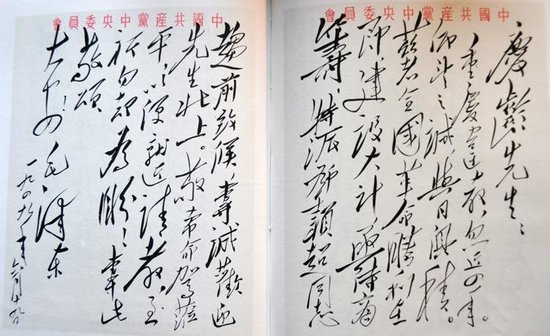 中國共産黨中央委員會
慶齡先生：
重慶違教，忽近四年。
仰望之誠，與日俱積。
茲者全國革命勝利在
即，建設大計，亟待商
籌，特派鄧穎超同志
中國共産黨中央委員會
趨前致候，專誠歡迎
先生北上。敬希命駕蒞
平，以便就近請教，至
祈勿却為盼！專此
敬頌
大安！毛澤東
一九四九年六月十九日